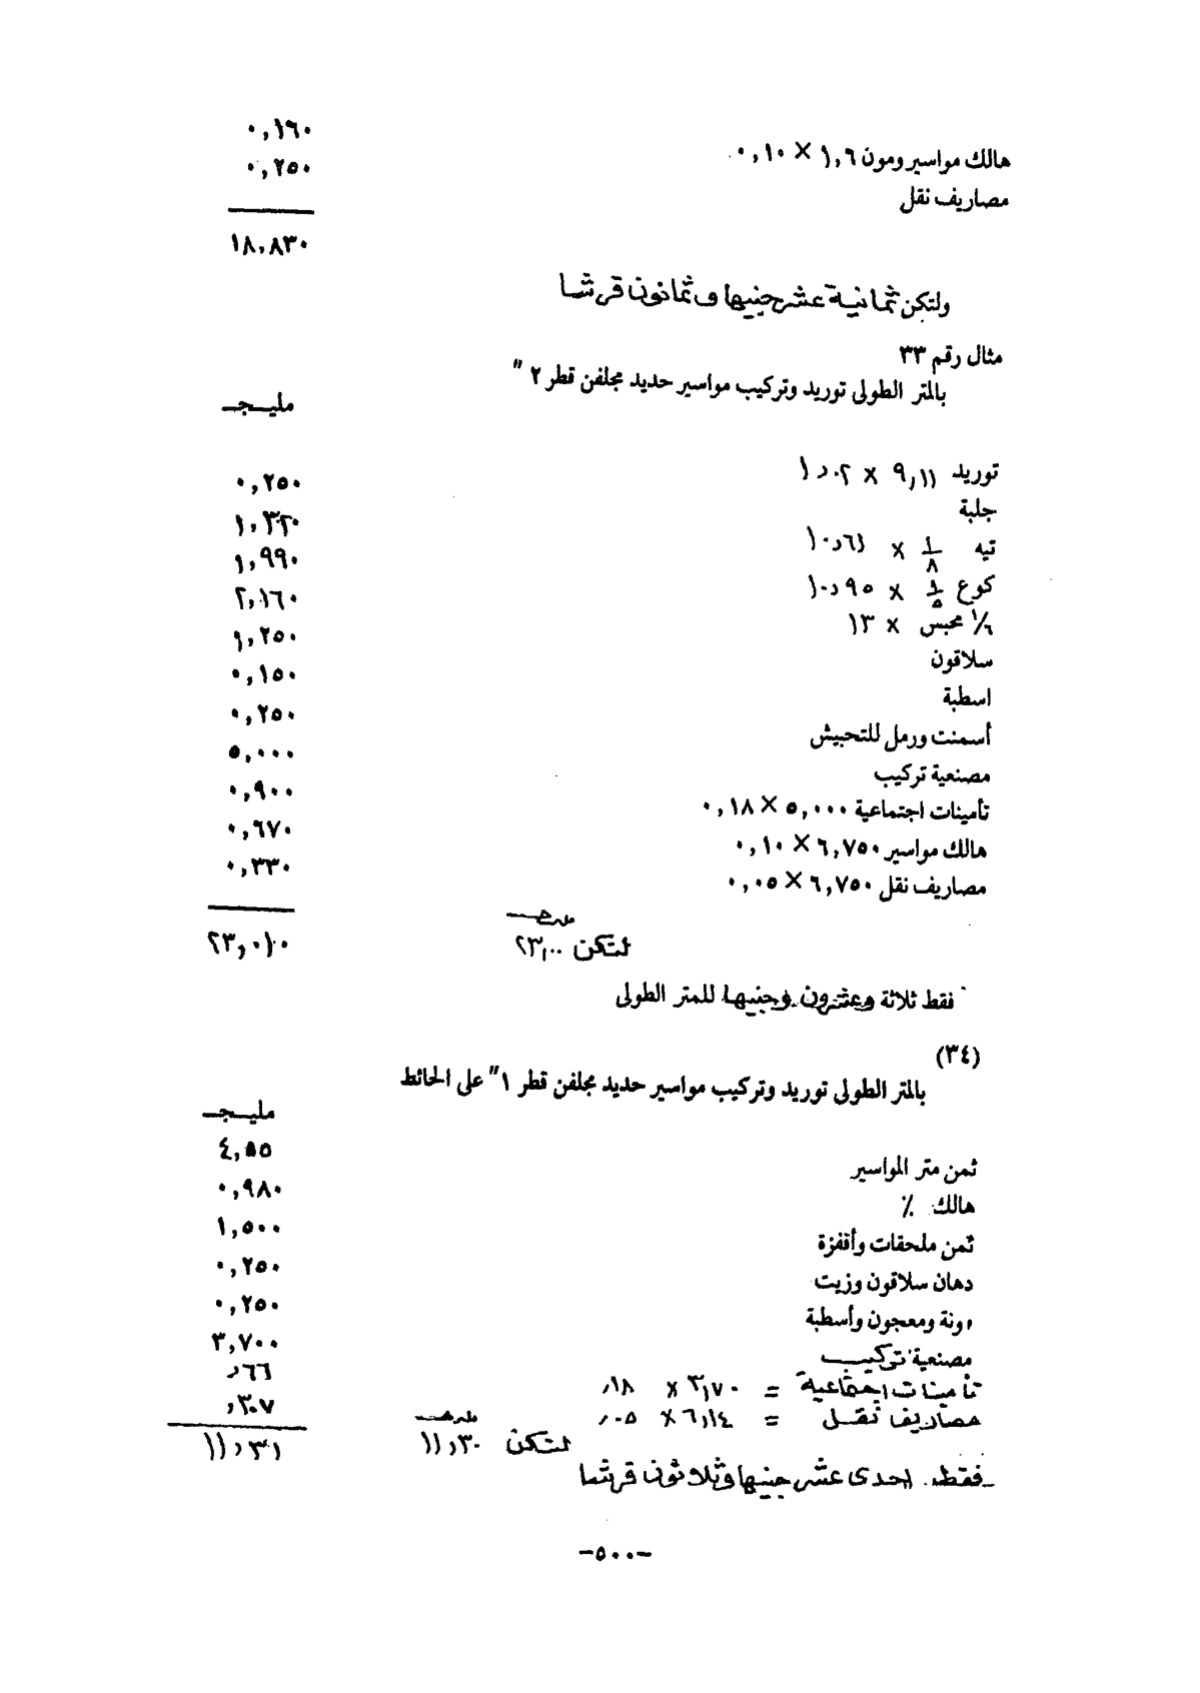 هالك مواسير ومون ١,٦ × ٠,١٠ ٠,١٦٠
مصاريف نقل ٠,٢٥٠
١٨,٨٣٠
ولتكن ثمانية عشر جنيها وثمانون قرشا
مثال رقم ٣٣
بالمتر الطولى توريد وتركيب مواسير حديد مجلفن قطر ٢ "
مليـجـ
توريد ٩,١١ × ١,٠٢
جلبة ٠,٢٥٠
تيه ١/٨ × ١٠,٦١ ١,٣٢٠
كوع ١/٥ × ١٠,٩٥ ١,٩٩٠
١/٦ محبس × ١٣ ٢,١٦٠
سلاقون ١,٢٥٠
اسطبة ٠,١٥٠
أسمنت ورمل للتحبيش ٠,٢٥٠
مصنعية تركيب ٥,٠٠٠
تأمينات اجتماعية ٥,٠٠٠ × ٠,١٨ ٠,٩٠٠
هالك مواسير ٦,٧٥٠ × ٠,١٠ ٠,٦٧٠
مصاريف نقل ٦,٧٥٠ × ٠,٠٥ ٠,٣٣٠
مليجـ
لتكن ٢٣,٠٠ ٢٣,٠١٠
فقط ثلاثة وعشرون جنيها للمتر الطولى
(٣٤)
بالمتر الطولى توريد وتركيب مواسير حديد مجلفن قطر ١ " على الحائط
مليـجـ
ثمن متر المواسير ٤,٥٥
هالك ٪ ٠,٩٨٠
ثمن ملحقات وأقفزة ١,٥٠٠
دهان سلاقون وزيت ٠,٢٥٠
ونة ومعجون وأسطبة ٠,٢٥٠
مصنعية تركيب ٣,٧٠٠
تأمينات اجتماعية = ٣,٧٠ × ,١٨ ,٦٦
مصاريف نقل = ٦,١٤ × ,٠٥ ,٣٠٧
مليجـ
لتكن ١١,٣٠ ١١,٣١
فقط احدى عشر جنيها وثلاثون قرشا
-٥٠٠-